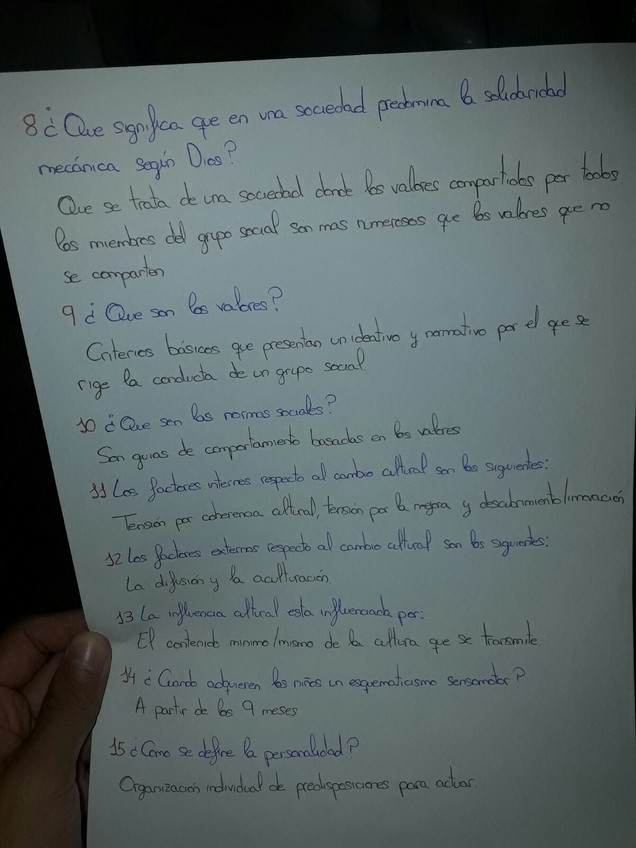 8 ¿Que significa que en una sociedad predomina la solidaridad
mecánica según Dios?
Que se trata de una sociedad donde los valores compartidos por todos
los miembros del grupo social son mas numerosos que los valores que no
se comparten
9 ¿Que son los valores?
Criterios básicos que presentan un ideativo y normativo por el que se
rige la conducta de un grupo social.
10 ¿Que son las normas sociales?
Son guias de comportamiento basadas en los valores
11 Los factores internos respecto al cambio cultural son los siguientes:
Tensión por coherencia cultural, tensión por la mejora y descubrimiento/innovación
12 Los factores externos respecto al cambio cultural son los siguientes:
La difusión y la aculturación
13 La influencia cultural esta influenciada por:
El contenido minimo/mismo de la cultura que se transmite.
14 ¿Cuando adquieren los niños un esquematicismo sensomotor?
A partir de los 9 meses
15 ¿Como se define la personalidad?
Organización individual de predisposiciones para actuar.